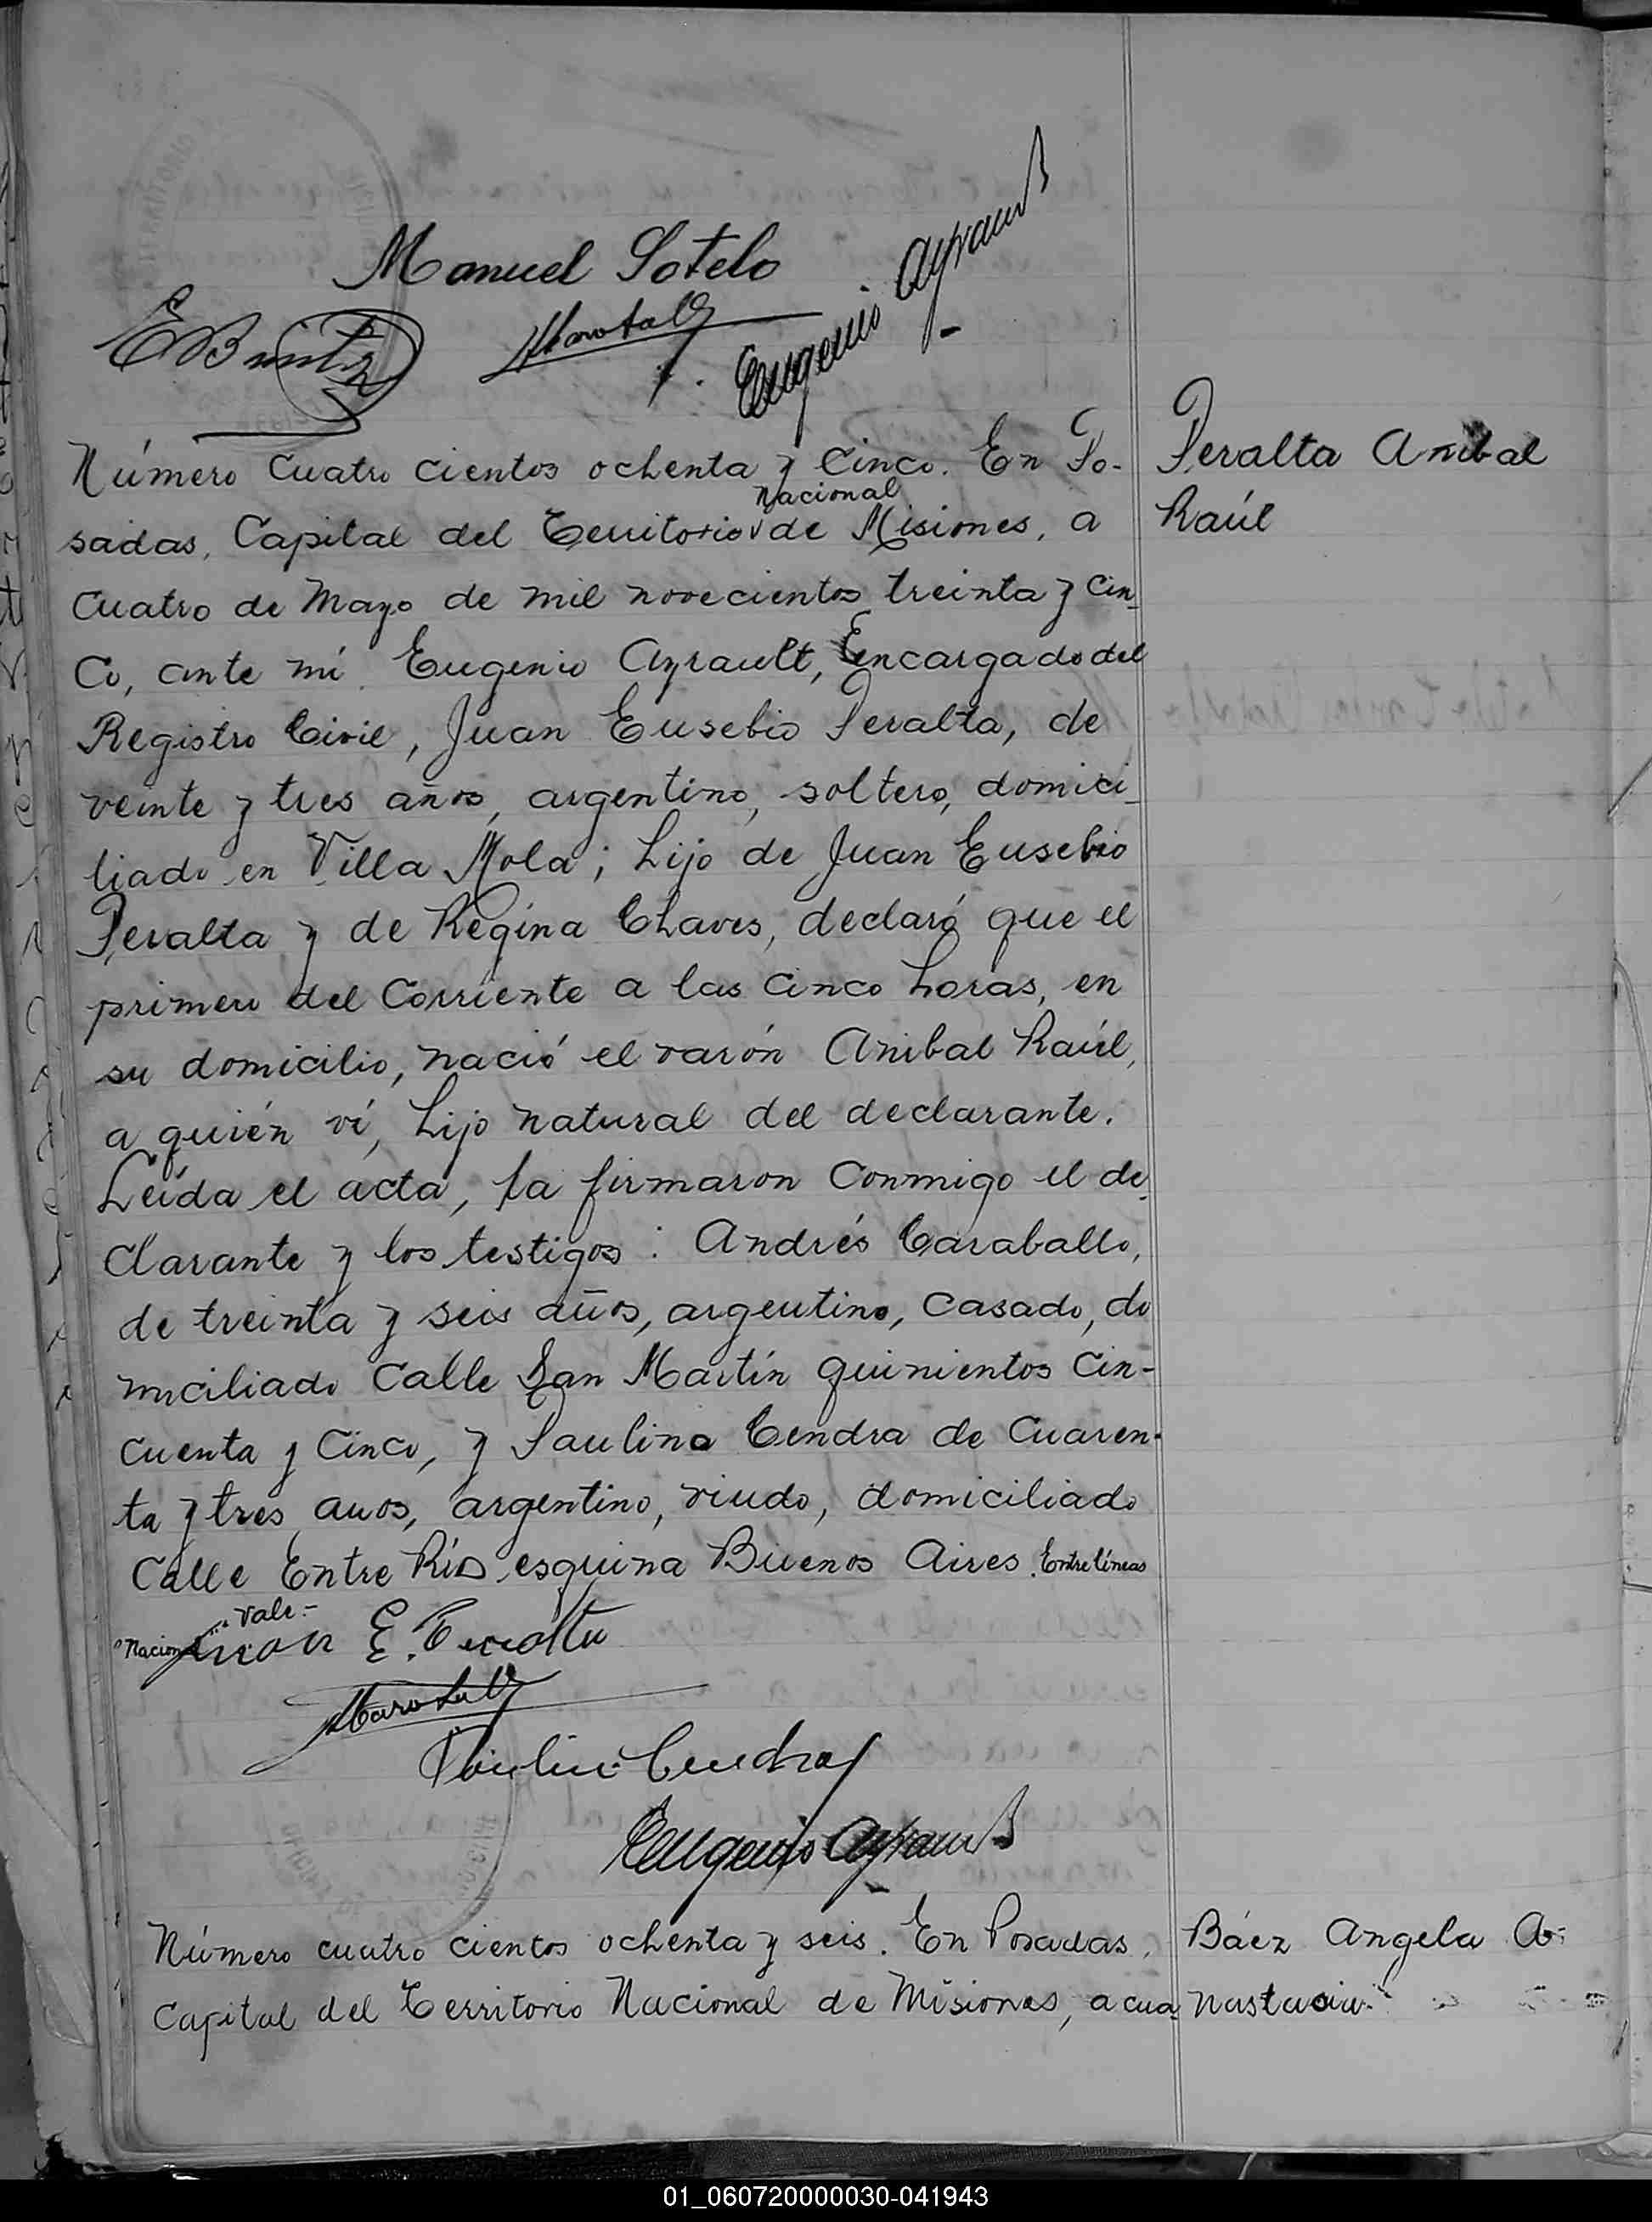 Manuel Sotelo
Eugenio Ayrault
Número cuatro cientos ochenta y cinco. En Po-
Peralta Anibal
Raúl
nacional
sadas, Capital del Territorio de Misiones, a
cuatro de Mayo de mil novecientos treinta y cin-
co, ante mí Eugenio Ayrault, Encargado del
Registro Civil, Juan Eusebio Peralta, de
veinte y tres años, argentino, soltero, domici-
liado en Villa Mola; hijo de Juan Eusebio
Peralta y de Regina Chaves, declaró que el
primero del corriente a las cinco horas, en
su domicilio, nació el varón Anibal Raúl,
a quién ví, hijo natural del declarante.
Leída el acta, la firmaron conmigo el de-
clarante y los testigos: Andrés Caraballo,
de treinta y seis años, argentino, casado, do
miciliado Calle San Martín quinientos cin-
cuenta y cinco, y Paulino Cendra de cuaren-
ta y tres años, argentino, viudo, domiciliado
Calle Entre Ríos esquina Buenos Aires. Entrelíneas
"Nacional" Vale.-
Juan E. Peralta
Paulino Cendra
Eugenio Ayrault
Número cuatro cientos ochenta y seis. En Posadas,
Capital del Territorio Nacional de Misiones, a cua-
Báez Angela A-
nastasia
01_060720000030-041943